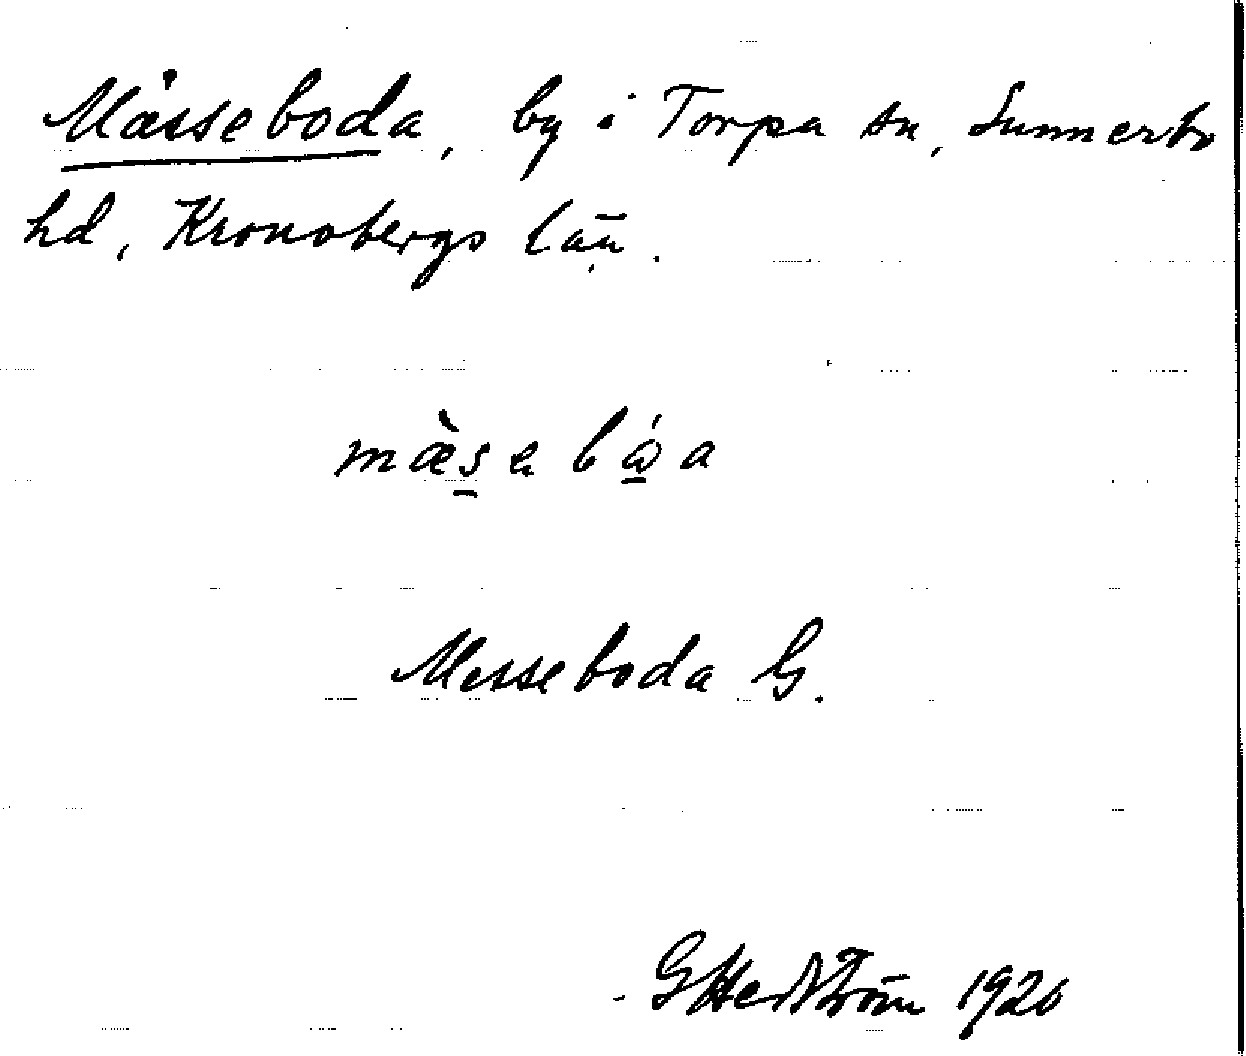 Mässeboda, by i Torpa sn, Sunnerbo
hd, Kronobergs län.
mæ̀sa båa
Messeboda G.
GHedström 1920